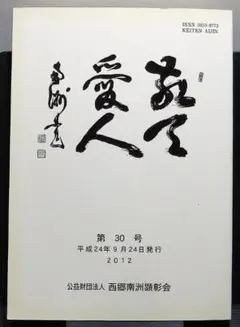 KEITEN AIJIN
敬天
愛人
南洲書
第 30 号
平成24年9月24日発行
2012
公益財団法人 西郷南洲顕彰会